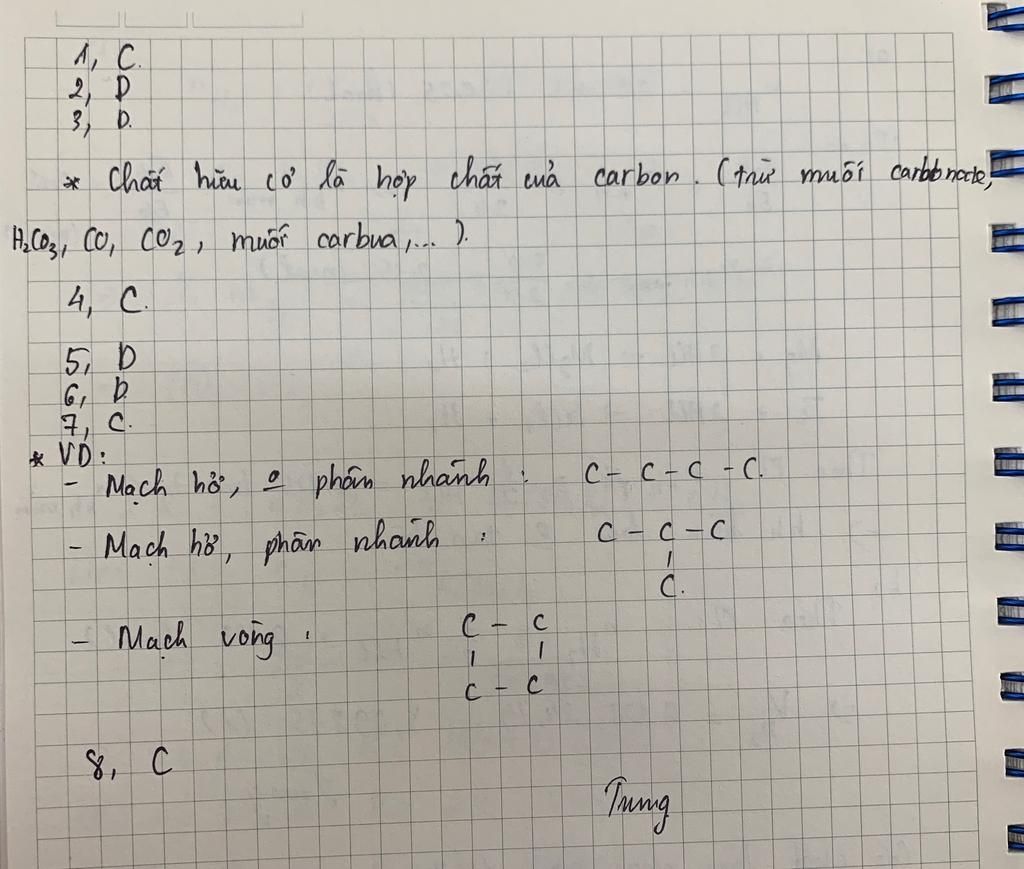 1, C.
2, D
3, D.
* Chất hữu cơ là hợp chất của carbon. (trừ muối carbbnate,
H₂CO₃, CO, CO₂, muối carbua,... ).
4, C.
5, D
6, D
7, C.
* VD:
- Mạch hở, o phân nhánh : C - C - C - C.
- Mạch hở, phân nhánh : C - C - C
|
C.
- Mạch vòng : C - C
| |
C - C
8, C
Trung